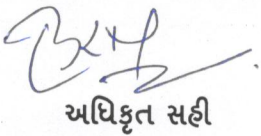 અધિકૃત સહી